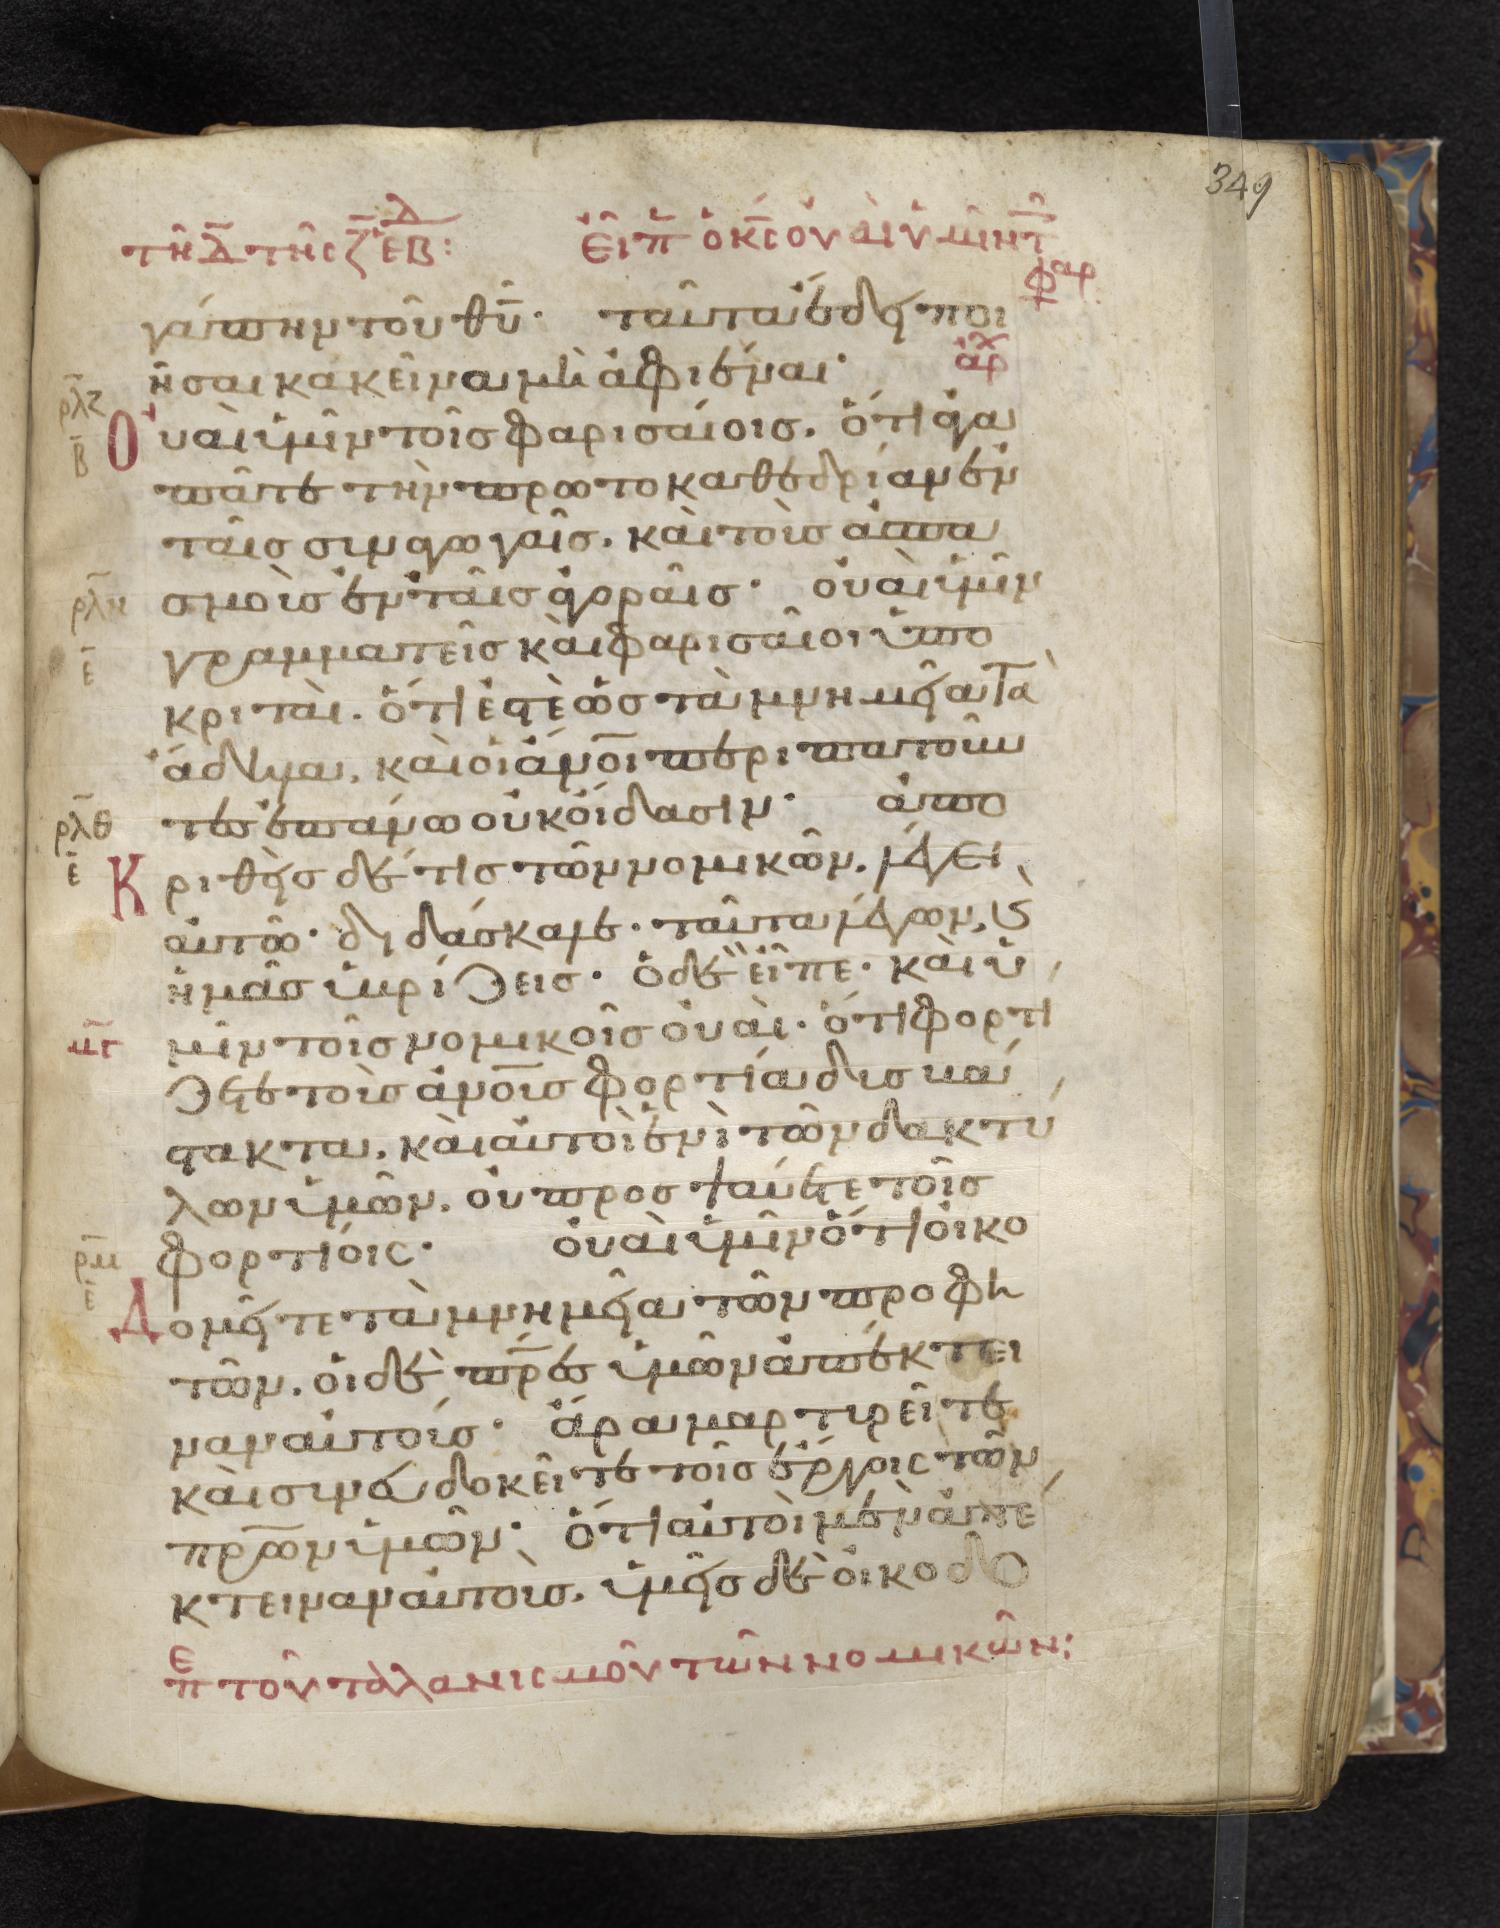 349
τῆ δ̄ τῆς ζ̄ ἑβδ: εἶπ ὁ κ̄ς οὐαὶ ὑμῖν τ̄
φαρ
γάπην τοῦ θ̄υ· ταῦτα ἔδει ποι
ἀρχ
ῆσαι κἀκεῖνα μὴ ἀφιέναι·
ρ̄λζ
β̄
Ουαὶ ὑμῖν τοῖς φαρισαίοις. ὅτι ἀγα
πᾶτε τὴν πρωτοκαθεδρίαν ἐν
ταῖς συναγωγαῖς. καὶ τοὺς ἀσπα
ρ̄λη
σμοὺς ἐν ταῖς ἀγοραῖς· οὐαὶ ὑμῖν
ε̄
γραμματεῖς καὶ φαρισαῖοι ὑπο
κριταὶ. ὅτι ἐστὲ ὡς τὰ μνημεῖα τὰ
ἄδηλα. καὶ οἱ ἄν̄οι περιπατοῦν
ρ̄λθ
τες ἐπάνω οὐκ οἴδασιν· ἀπο
ε̄
Κριθεὶς δέ τις τῶν νομικῶν. λέγει
αὐτῶ· διδάσκαλε. ταῦτα λέγων, καὶ
ἡμᾶς ὑβρίζεις· ὁ δὲ εἶπε· καὶ ὑ
μ̄γ
μῖν τοῖς νομικοῖς οὐαὶ. ὅτι φορτί
ζετε τοὺς ἀν̄ους φορτία δυσβά
στακτα. καὶ αὐτοὶ ἑνὶ τῶν δακτύ
λων ὑμῶν. οὐ προσψαύετε τοῖς
ρ̄μ
φορτίοις· οὐαὶ ὑμῖν ὅτι οἰκο
ε̄
Δομεῖτε τὰ μνημεῖα τῶν προφη
τῶν. οἱ δὲ π̄ρες ὑμῶν ἀπέκτει
ναν αὐτούς· ἄρα μαρτυρεῖτε
καὶ συνευδοκεῖτε τοῖς ἔργοις τῶν
π̄ρων ὑμῶν· ὅτι αὐτοὶ μὲν ἀπέ
κτειναν αὐτοὺς. ὑμεῖς δὲ οἰκοδο
πε τοῦ ταλανισμοῦ τῶν νομικῶν: